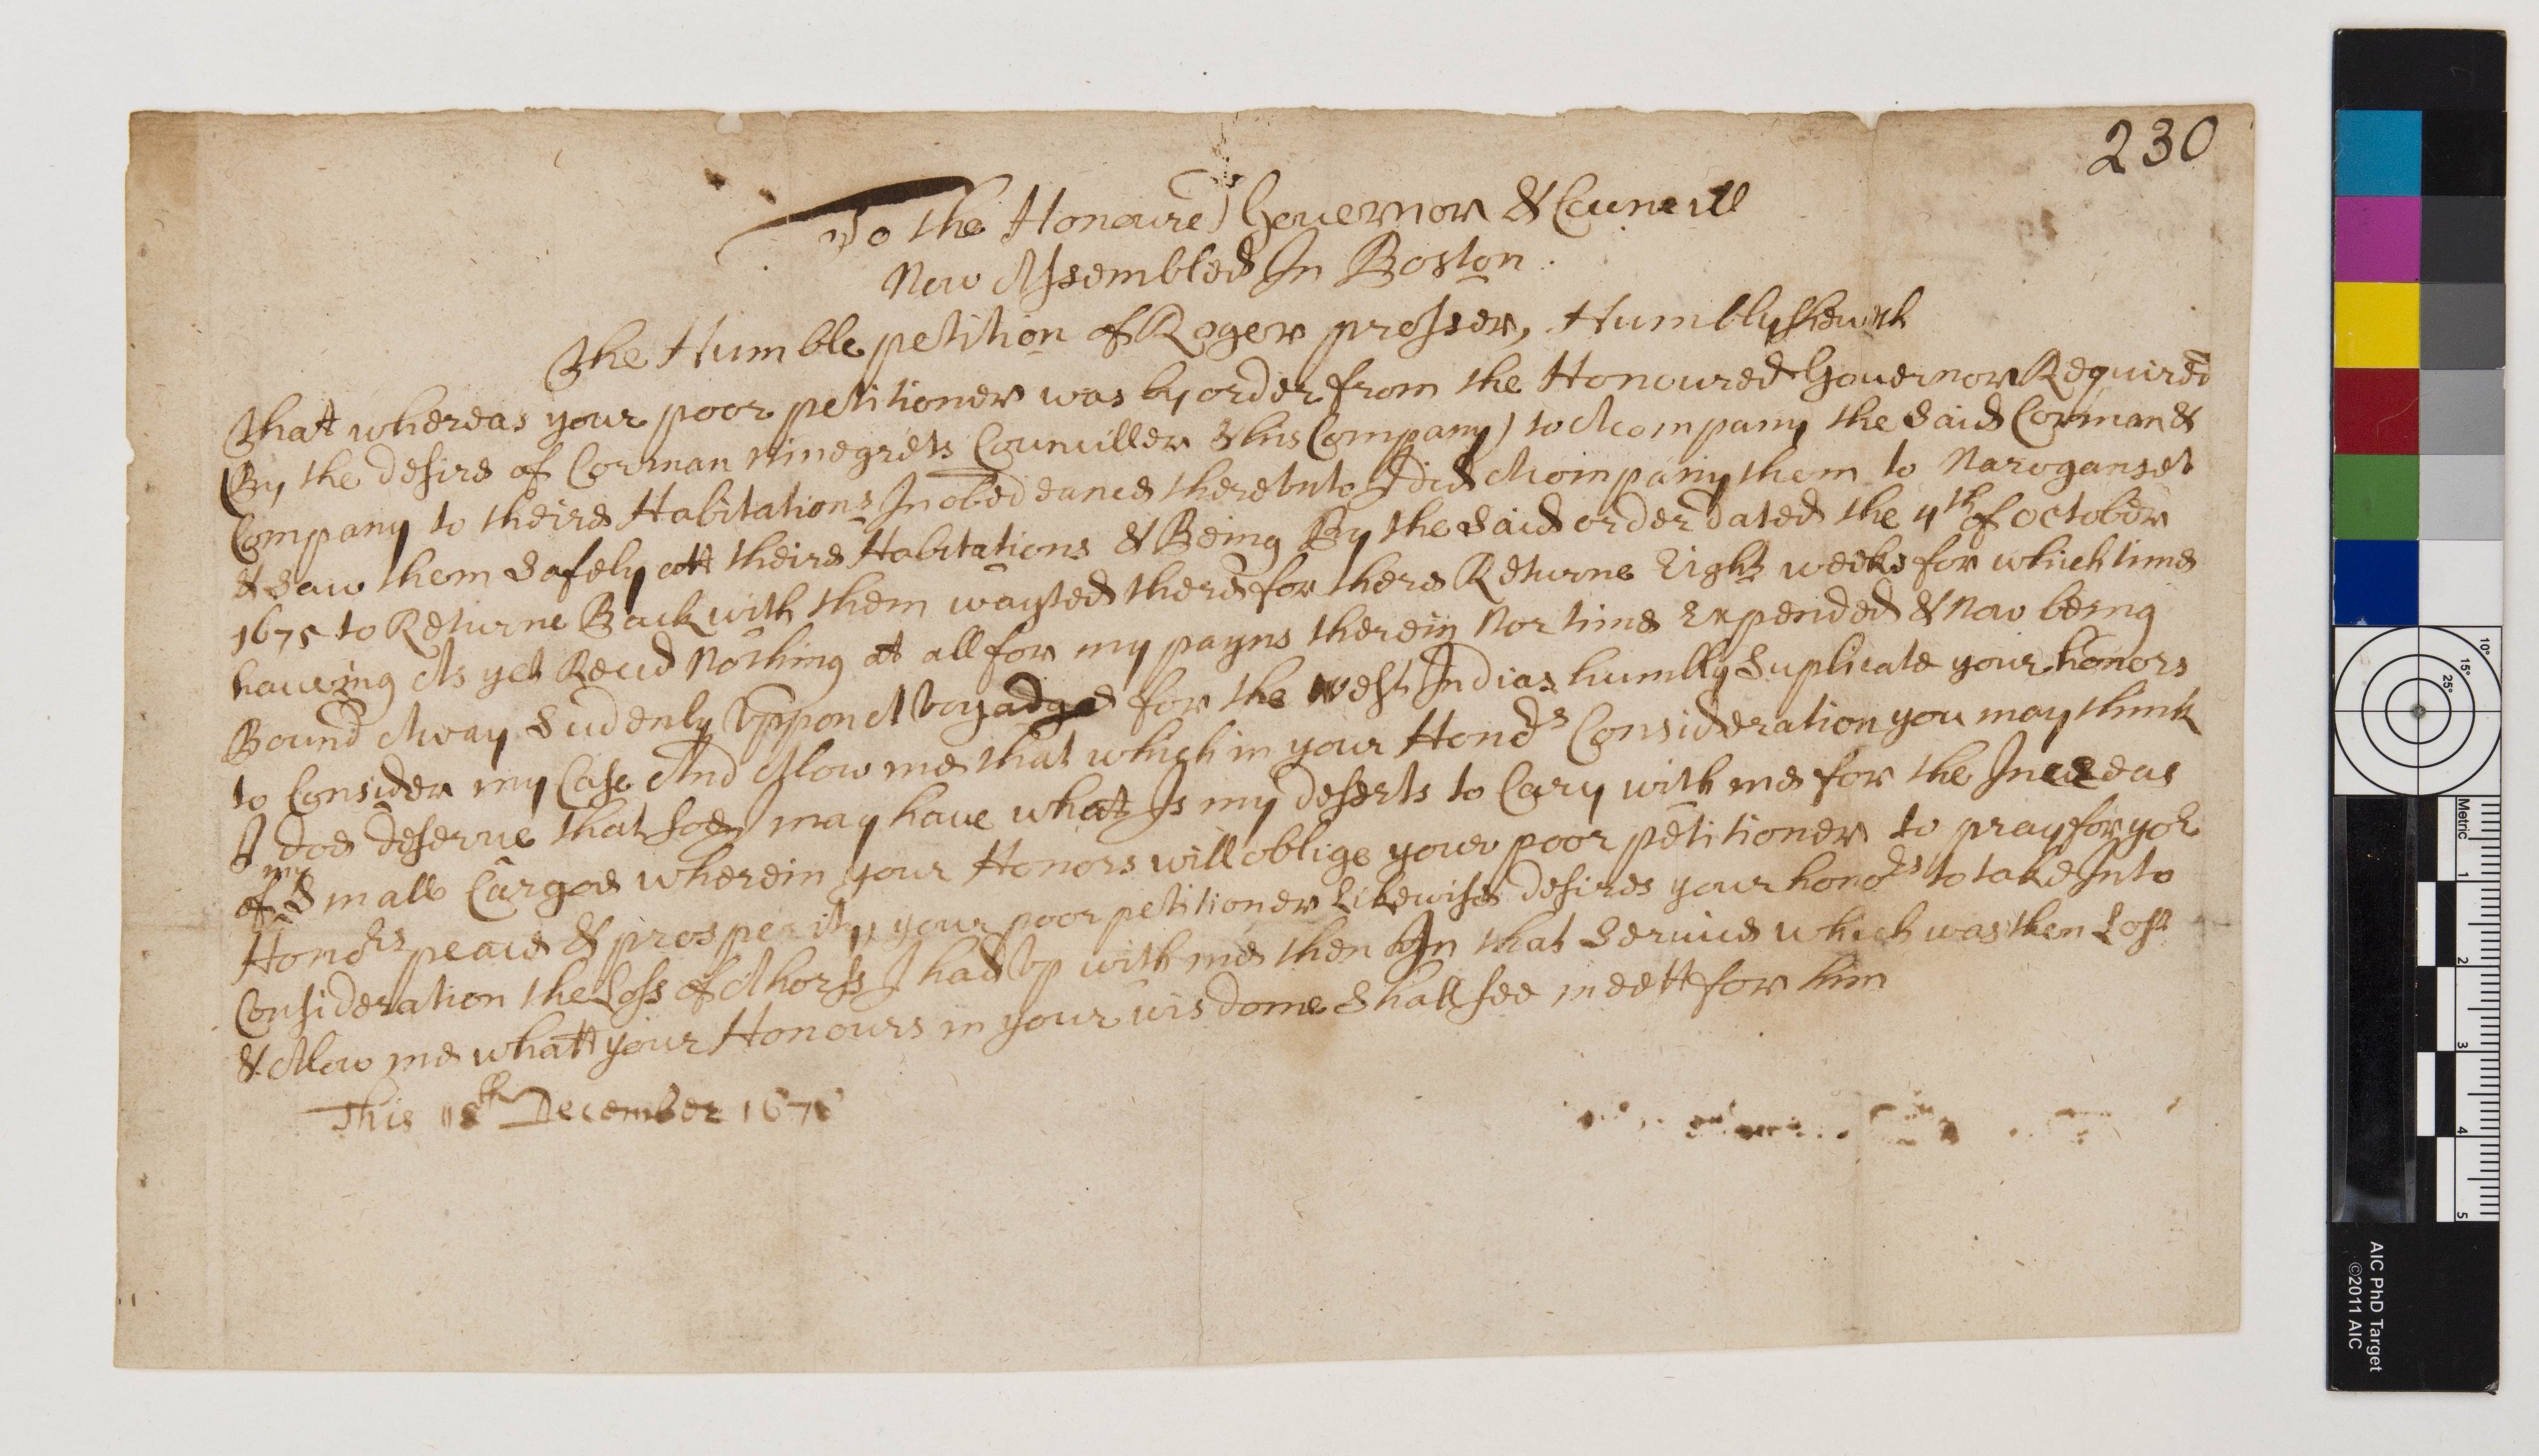 230
To the Honoured Gouernor & Councill
Now Assembled In Boston
The Humble petition of Roger prosser, Humbly sheweth
That whereas your poor petitioner was by order from the Honoured Gouernor Required
(By the desire of Corman ninegrets Counciller & his Company) to Acompany the said Corman &
Company to theire Habitations In obedeance therevnto I did Acompany them to Naroganset
& saw them safely att theire Habitations & Being By the said order dated the 4th of october
1675 to Returne Back with them wayted there for there Returne Eight weeks for which time
haueing As yet Reced Nothing at all for my payns therein Nor time Expended & Now being
Bound Away Sudenly Vppon A Voyadge for the west Indias humbly Suplicate your honors
to Consider my Case And Alow me that which in your Honors Consideration you may think
I doe deserue that soe I may haue what Is my deserts to Cary with me for the Increas
of my Small Cargoe wherein your Honors will oblige your poor petitioner to pray for yor
Honors peace & prosperity, your poor petitioner Likewise desires your honors to take Into
Consideration the Loss of A horss I had Vp with me then In that Seruice which was then Lost
& Alow me whatt your Honours in your wisdome Shall see meett for him
This 18th December 1675
Metric
1
2
3
4
5
10°
15°
25°
AIC PhD Target
©2011 AIC